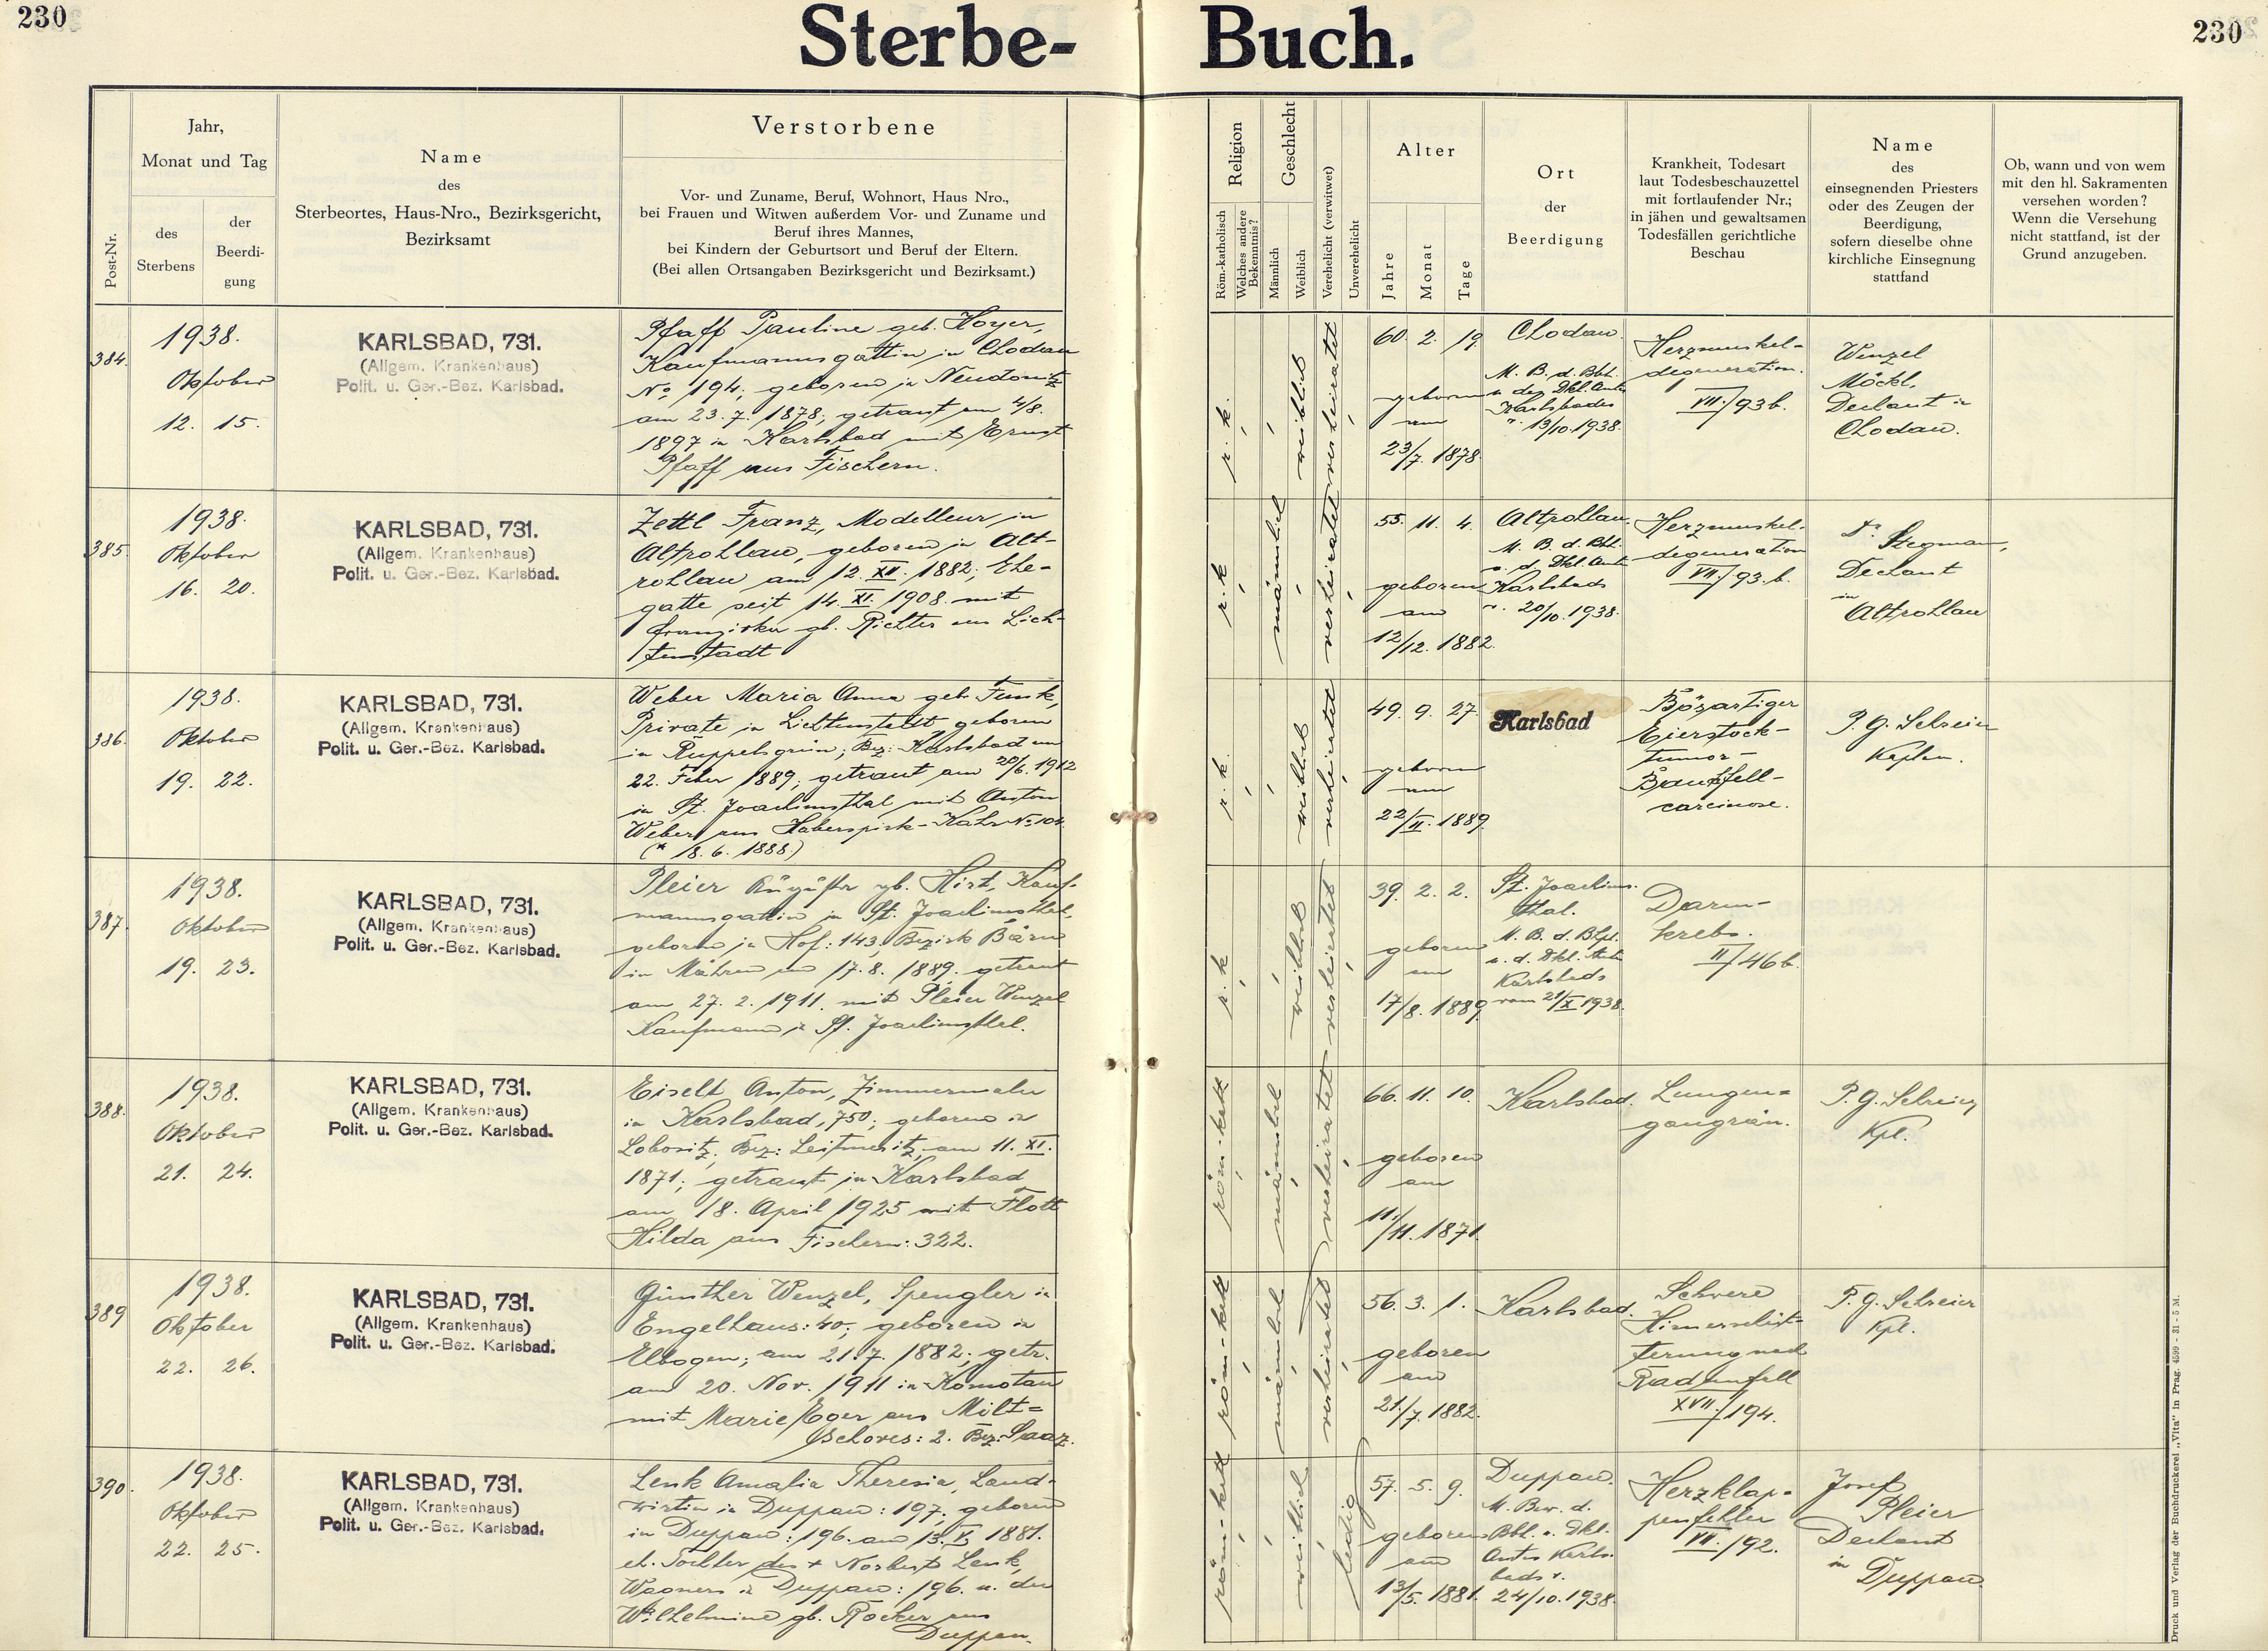 230
Sterbe-
Buch.
230
Post-Nr.
Jahr,
Monat und Tag
des
Sterbens
der
Beerdi-
gung
Name
des
Sterbeortes, Haus-Nro., Bezirksgericht,
Bezirksamt
Verstorbene
Vor- und Zuname, Beruf, Wohnort, Haus Nro.,
bei Frauen und Witwen außerdem Vor- und Zuname und
Beruf ihres Mannes,
bei Kindern der Geburtsort und Beruf der Eltern.
(Bei allen Ortsangaben Bezirksgericht und Bezirksamt.)
Religion
Röm.-katholisch
Welches andere
Bekenntnis?
Geschlecht
Männlich
Weiblich
Verehelicht (verwitwet)
Unverehelicht
Alter
Jahre
Monat
Tage
Ort
der
Beerdigung
Krankheit, Todesart
laut Todesbeschauzettel
mit fortlaufender Nr.;
in jähen und gewaltsamen
Todesfällen gerichtliche
Beschau
Name
des
einsegnenden Priesters
oder des Zeugen der
Beerdigung,
sofern dieselbe ohne
kirchliche Einsegnung
stattfand
Ob, wann und von wem
mit den hl. Sakramenten
versehen worden?
Wenn die Versehung
nicht stattfand, ist der
Grund anzugeben.
384.
1938.
Oktober
12. 15.
KARLSBAD, 731.
(Allgem. Krankenhaus)
Polit. u. Ger.-Bez. Karlsbad.
Pfaff Pauline geb. Hoyer,
Kaufmannsgattin in Chodau
No 194; geboren in Neudonitz
am 23. 7. 1878; getraut am 4/8.
1897 in Karlsbad mit Ernst
Pfaff aus Fischern.
r. k.
weiblich
verheiratet
60. 2. 19.
geboren
am
23/7. 1878.
Chodau.
M. B. d. Bbh.
u. des Dkl. Amtes
Karlsbades
v. 13/10. 1938.
Herzmuskel-
degeneration.
VII./93 b.
Wenzel
Möckl,
Dechant in
Chodau.
385.
1938.
Oktober
16. 20.
KARLSBAD, 731.
(Allgem. Krankenhaus)
Polit. u. Ger.-Bez. Karlsbad.
Zettl Franz, Modelleur in
Altrohlau, geboren in Alt-
rohlau am 12. XII. 1882; Ehe-
gatte seit 14. XI. 1908 mit
Franziska gb. Richter aus Lich-
tenstadt
r. k.
männlich
verheiratet
55. 11. 4.
geboren
am
12/12. 1882.
Altrohlau.
M. B. d. Bbh.
u. d. Dkl. Amt
Karlsbads
v. 20/10. 1938.
Herzmuskel-
degeneration
VII./93. b.
Dr. Stegmann,
Dechant
in
Altrohlau
386.
1938.
Oktober
19. 22.
KARLSBAD, 731.
(Allgem. Krankenhaus)
Polit. u. Ger.-Bez. Karlsbad.
Weber Maria Anna geb. Funk,
Private in Lichtenstadt geboren
in Ruppelsgrün; Bez: Karlsbad am
22. Feber 1889; getraut am 20/6. 1912
in St. Joachimsthal mit Anton
Weber aus Haberspirk-Kahr No 104.
(* 18. 6. 1888)
r. k.
weiblich
verheiratet
49. 9. 27.
geboren
am
22/II. 1889.
Karlsbad
Bösartiger
Eierstock-
tumor-
Bauchfell-
carcinose.
P. G. Schreier
Kaplan.
387.
1938.
Oktober
19. 23.
KARLSBAD, 731.
(Allgem. Krankenhaus)
Polit. u. Ger.-Bez. Karlsbad.
Pleier Auguste gb. Hirt, Kauf-
mannsgattin in St. Joachimsthal,
geboren in Hof: 143, Bezirk Bärn
in Mähren am 17. 8. 1889. getraut
am 27. 2. 1911. mit Pleier Wenzel
Kaufmann in St. Joachimsthal.
r. k.
weiblich
verheiratet
39. 2. 2.
geboren
am
17/8. 1889.
St. Joachims-
thal.
M. B. d. Bhpt.
u. d. Dkl. Amte
Karlsbads
vom 21/X. 1938.
Darm-
krebs.
II/46 b.
388.
1938.
Oktober
21. 24.
KARLSBAD, 731.
(Allgem. Krankenhaus)
Polit. u. Ger.-Bez. Karlsbad.
Eiselt Anton, Zimmermaler
in Karlsbad, 750; geboren in
Lobositz, Bez: Leitmeritz, am 11. XI.
1871; getraut in Karlsbad
am 18. April 1925 mit Flott
Hilda aus Fischern: 322.
röm.-kath
männlich
verheiratet
66. 11. 10.
geboren
am
11./11. 1871.
Karlsbad.
Lungen=
gangrän.
P. G. Schreier
Kpl.
389
1938.
Oktober
22. 26.
KARLSBAD, 731.
(Allgem. Krankenhaus)
Polit. u. Ger.-Bez. Karlsbad.
Günther Wenzel, Spengler in
Engelhaus: 40; geboren in
Elbogen; am 21. 7. 1882; getr.
am 20. Nov. 1911 in Komotau
mit Marie Eger aus Milt=
schoves: 2. Bez: Saaz.
röm-kath
männlich
verheiratet
56. 3. 1.
geboren
am
21./7. 1882.
Karlsbad.
Schwere
Hirnerschüt=
terung nach
Radunfall
XVII./194.
P. G. Schreier
Kpl.
390.
1938.
Oktober
22. 25.
KARLSBAD, 731.
(Allgem. Krankenhaus)
Polit. u. Ger.-Bez. Karlsbad.
Lenk Amalia Theresia, Land-
wirtin in Duppau: 197; geboren
in Duppau: 196. am 13. V. 1881.
eh. Tochter des + Norbert Lenk,
Wagners in Duppau: 196. u. der
Wilhelmine gb. Rocker aus
Duppau.
röm-kath
weiblich
ledig
57. 5. 9.
geboren
am
13/5. 1881.
Duppau.
M. Bew. d.
Bbh. u. Dkl.
Amtes Karls-
bads v.
24/10. 1938.
Herzklap-
penfehler
VII./92.
Josef
Pleier
Dechant
in
Duppau.
Druck und Verlag der Buchdruckerei „Vita" in Prag. 4599 - 31 - 5 M.